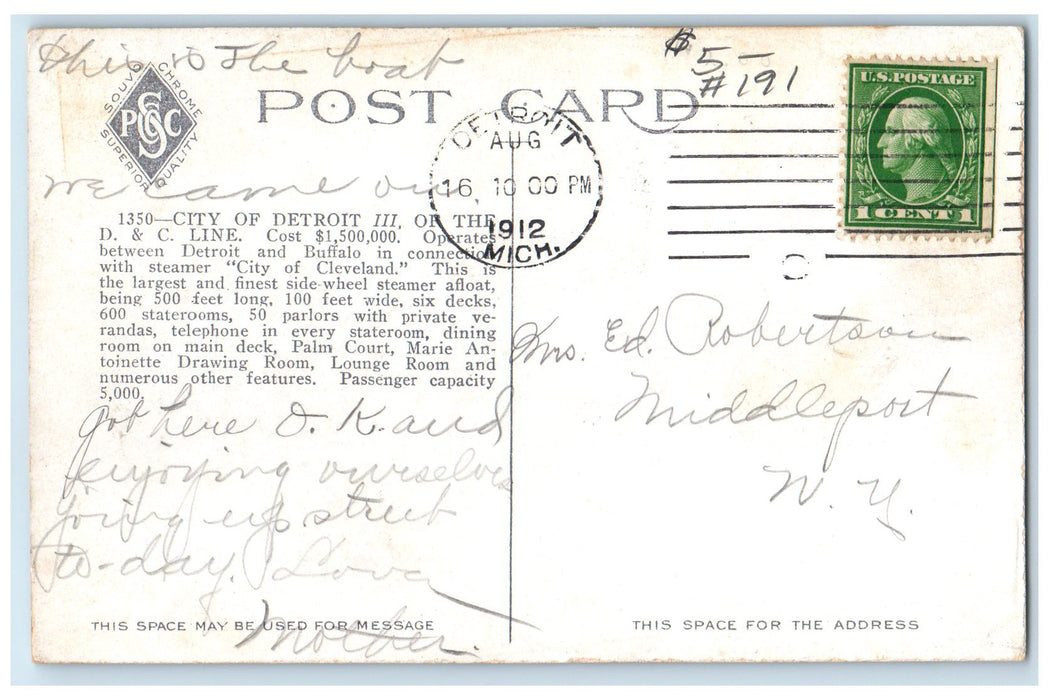 This is The boat
$5-
#191
SOUVO CHROME
PSC
SUPERIOR QUALITY
POST CARD
U.S. POSTAGE
1 CENT 1
DETROIT
AUG
16, 10 00 PM
1912
MICH.
we came over
1350—CITY OF DETROIT III, OF THE
D. & C. LINE. Cost $1,500,000. Operates
between Detroit and Buffalo in connection
with steamer "City of Cleveland." This is
the largest and finest side-wheel steamer afloat,
being 500 feet long, 100 feet wide, six decks,
600 staterooms, 50 parlors with private ve-
randas, telephone in every stateroom, dining
room on main deck, Palm Court, Marie An-
toinette Drawing Room, Lounge Room and
numerous other features. Passenger capacity
5,000.
got here O.K. and
enjoying ourselves
going up street
to-day.
Mother.
Mrs. Ed. Robertson
Middleport
N. Y.
THIS SPACE MAY BE USED FOR MESSAGE
THIS SPACE FOR THE ADDRESS